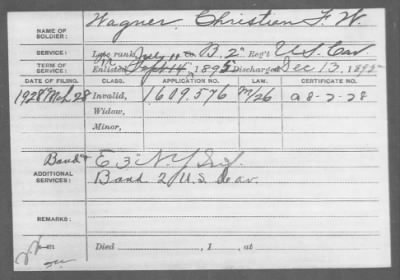 NAME OF SOLDIER: Wagner, Christian F. W.
SERVICE: Late rank, B. 2" Reg't U.S. Cav
TERM OF SERVICE: Enlisted July 11 Sept 14" 1895 Discharged Dec 13, 189
DATE OF FILING. CLASS. APPLICATION NO. LAW. CERTIFICATE NO.
1928 Mch. 28 Invalid, 1609576 a 8-2-28
Widow,
Minor,
ADDITIONAL SERVICES: Band & E 3" N.Y. Inf.
Band 2 U.S. Cav.
REMARKS:
Died , 1 , at